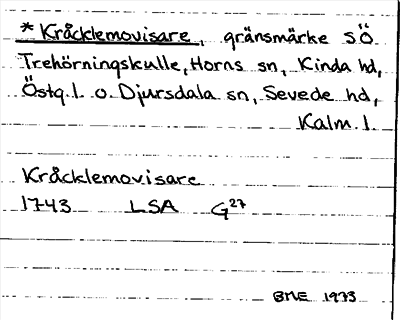 * Kråcklemovisare, gränsmärke SÖ
Trehörningskulle, Horns sn, Kinda hd,
Östg. l. o. Djursdala sn, Sevede hd,
Kalm. l.
Kråcklemovisare
1743 LSA G27
BME 1973